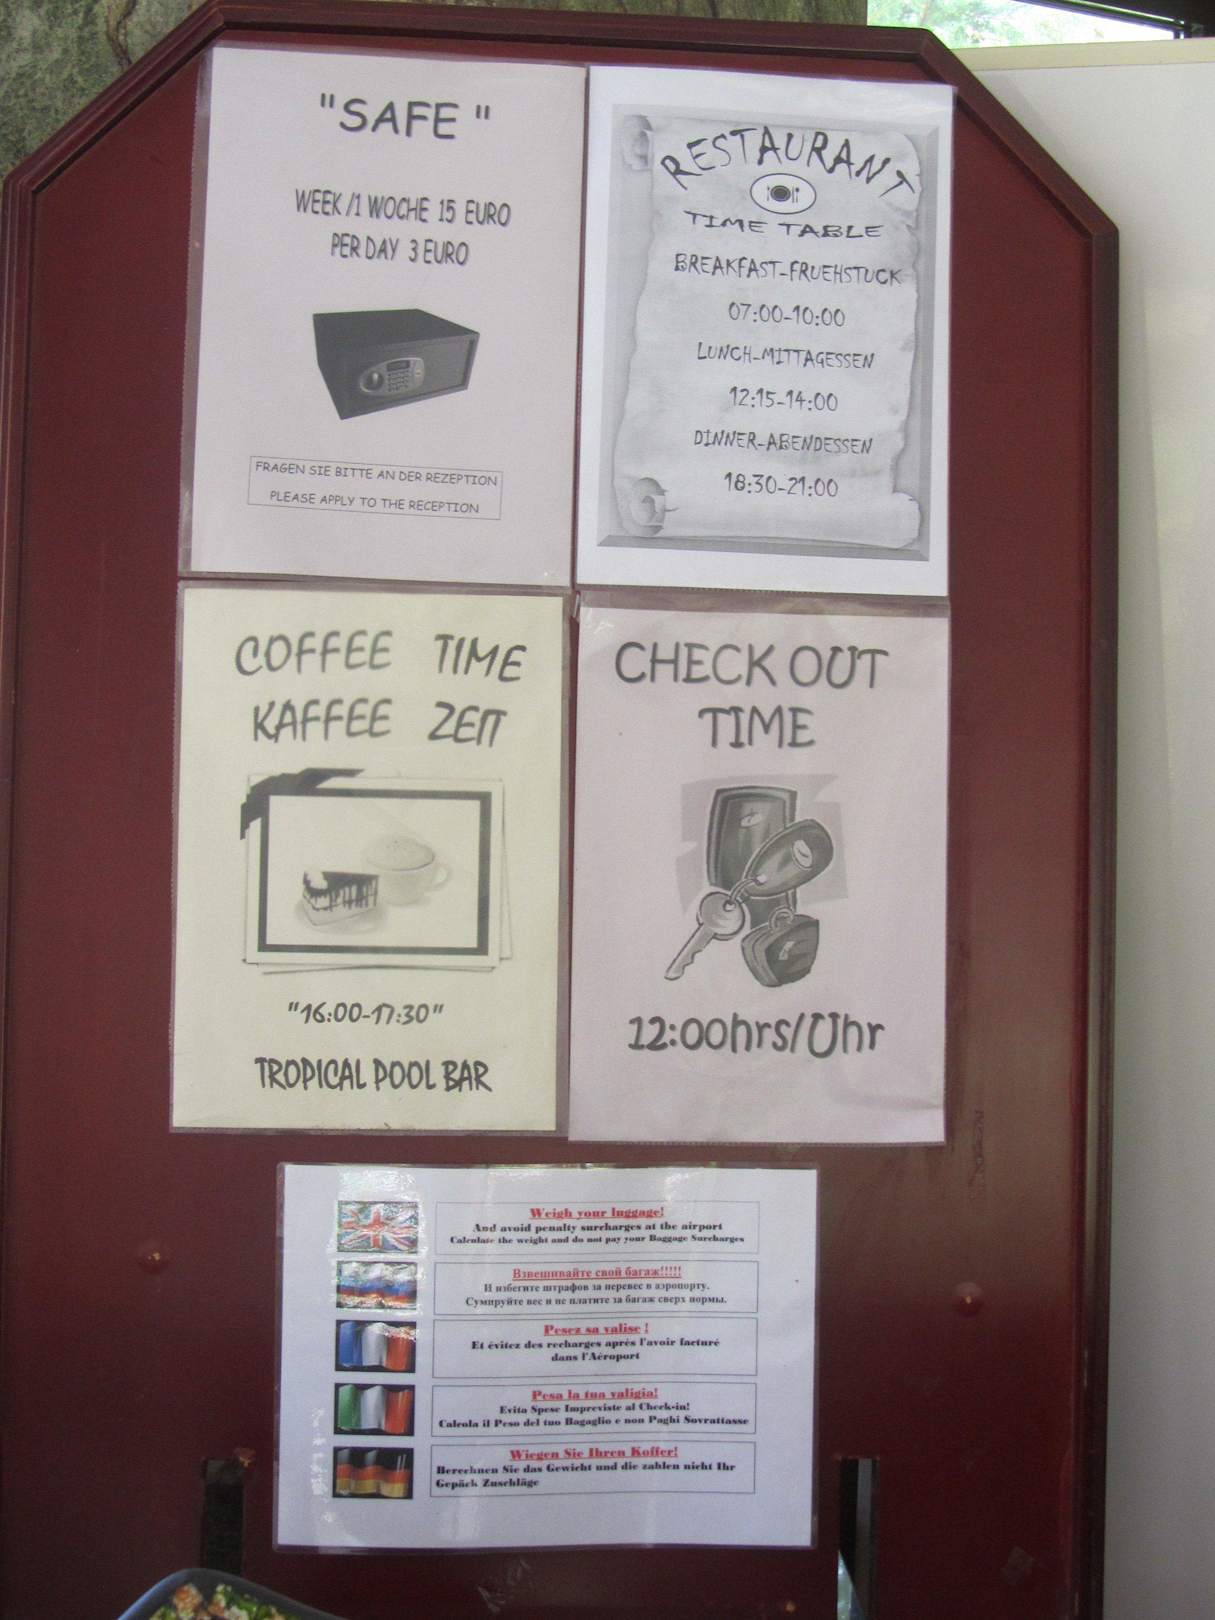 "SAFE "
WEEK /1 WOCHE 15 EURO
PER DAY 3 EURO
FRAGEN SIE BITTE AN DER REZEPTION
PLEASE APPLY TO THE RECEPTION
RESTAURANT
TIME TABLE
BREAKFAST-FRUEHSTUCK
07:00-10:00
LUNCH-MITTAGESSEN
12:15-14:00
DINNER-ABENDESSEN
18:30-21:00
COFFEE TIME
KAFFEE ZEIT
"16:00-17:30"
TROPICAL POOL BAR
CHECK OUT
TIME
12:00hrs/Uhr
Weigh your luggage!
And avoid penalty surcharges at the airport
Calculate the weight and do not pay your Baggage Surcharges
Взвешивайте свой багаж!!!!!
И избегите штрафов за перевес в аэропорту.
Сумируйте вес и не платите за багаж сверх нормы.
Pesez sa valise !
Et évitez des recharges après l'avoir facturé
dans l'Aéroport
Pesa la tua valigia!
Evita Spese Impreviste al Check-in!
Calcola il Peso del tuo Bagaglio e non Paghi Sovrattasse
Wiegen Sie Ihren Koffer!
Berechnen Sie das Gewicht und die zahlen nicht Ihr
Gepäck Zuschläge